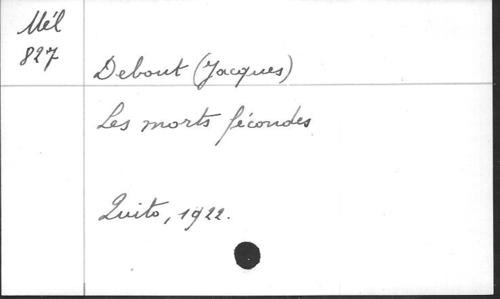 Mél
827
Debout (Jacques)
Les morts fécondes
Quito, 1922.